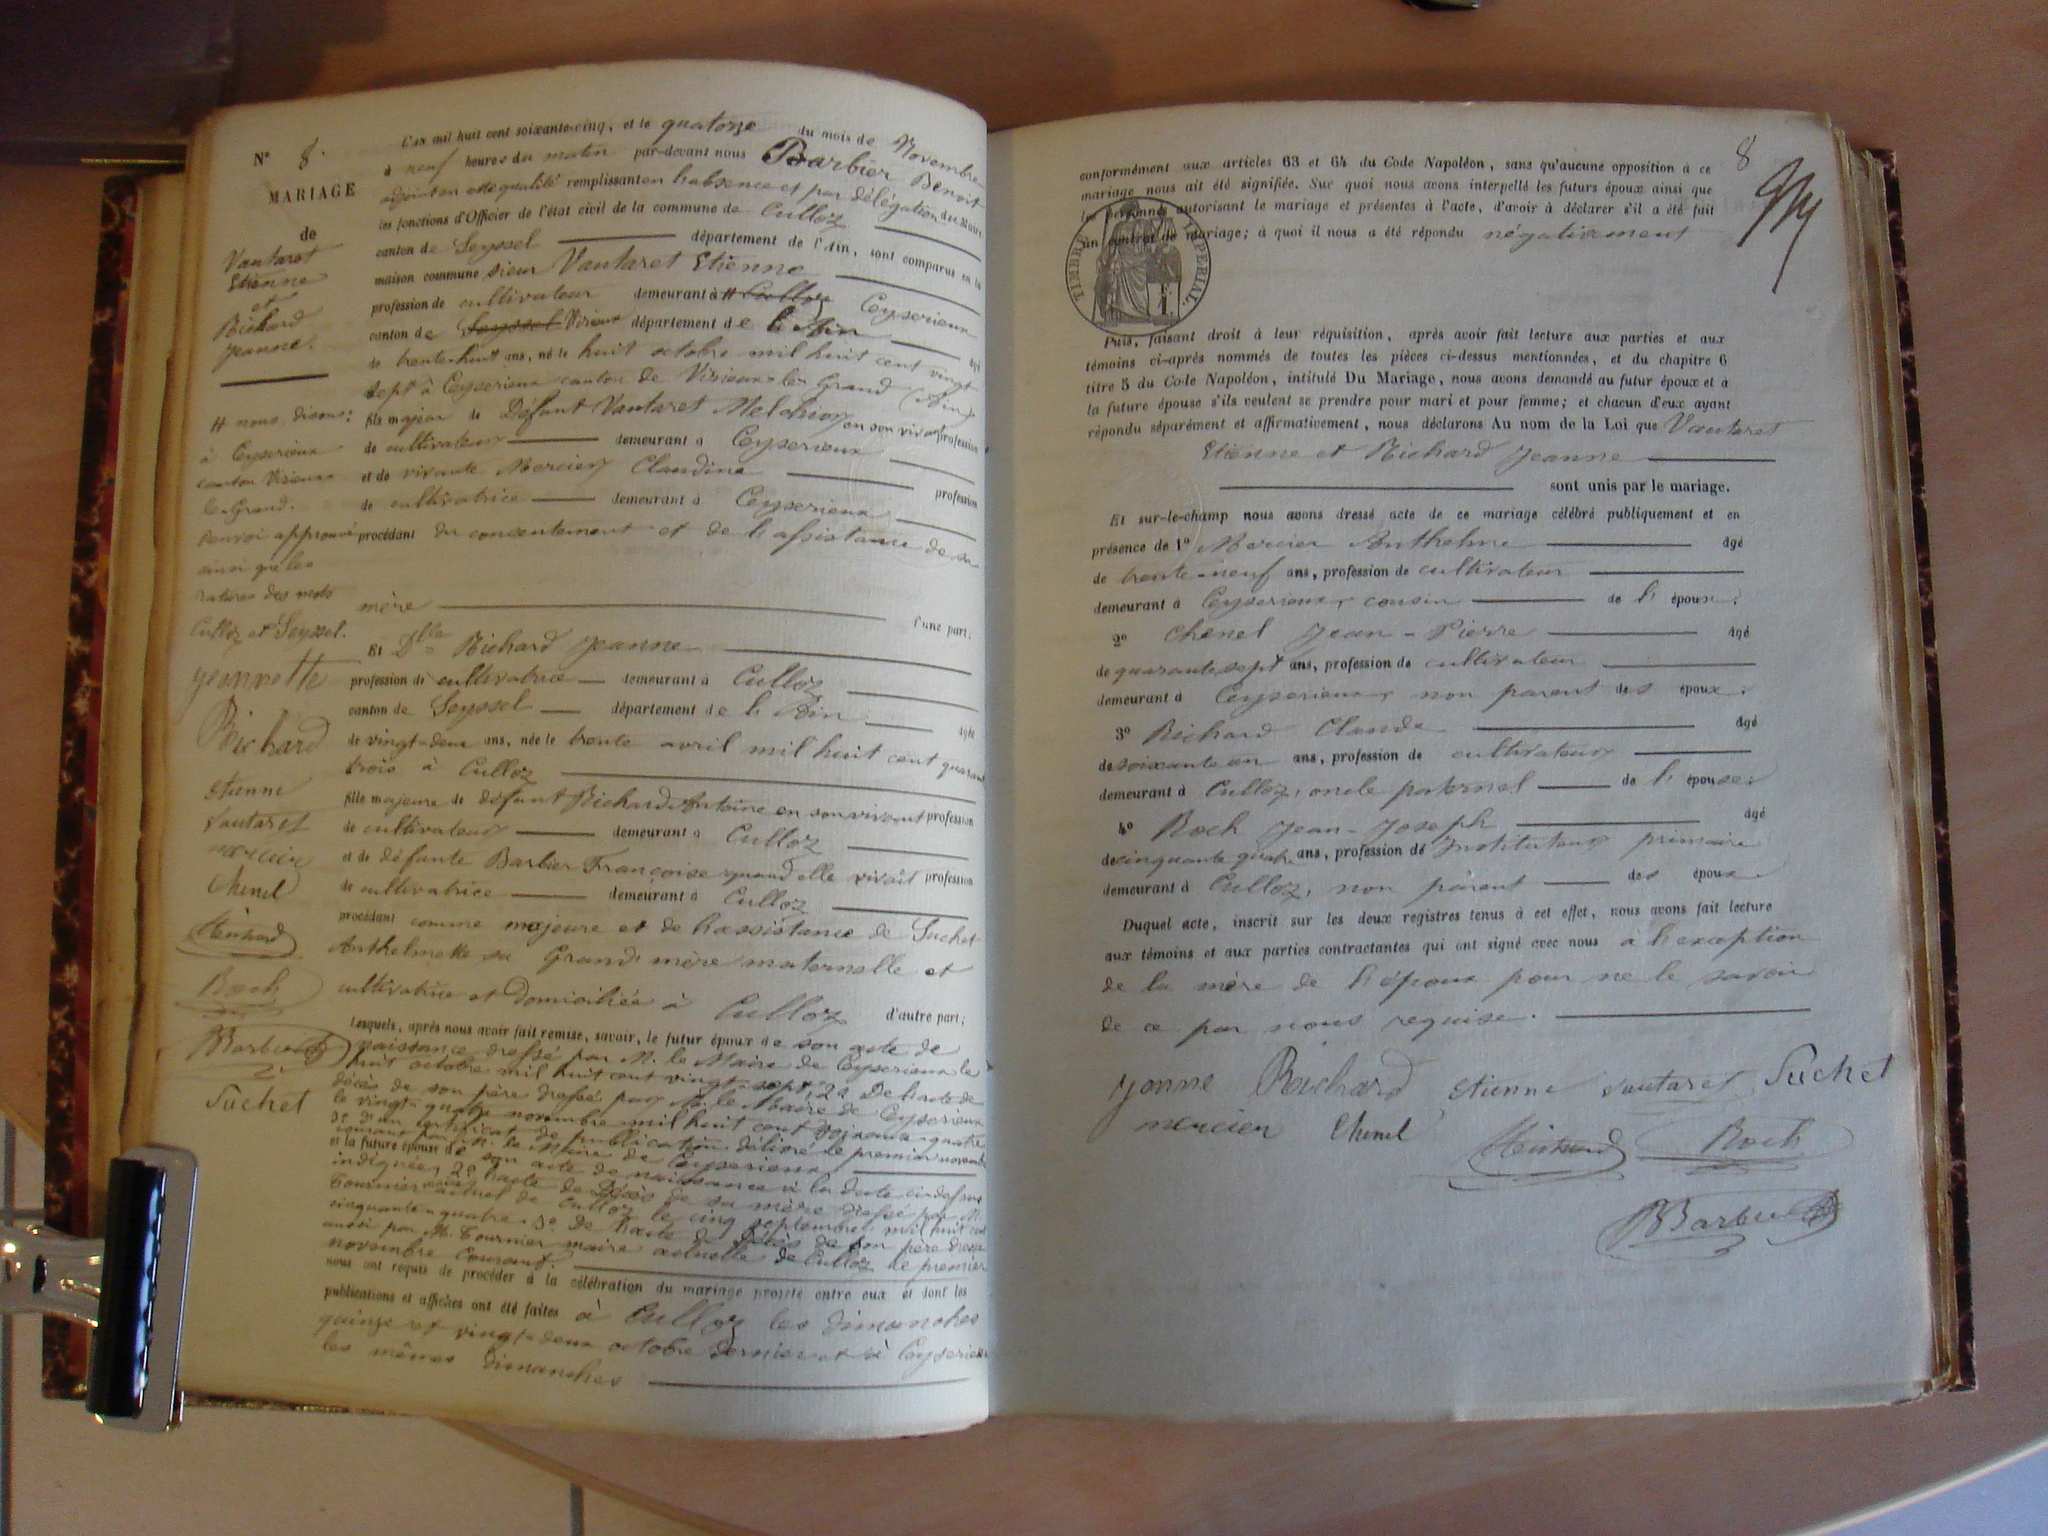 N° 8.
MARIAGE
de
Vautaret
Etienne
et
Richard
Jeanne.
L'an mil huit cent soixante-cinq, et le quatorze du mois de Novembre
à neuf heures du matin par-devant nous Barbier Benoit
adjoint en cette qualité remplissant en l'absence et par délégation du Maire
les fonctions d'Officier de l'état civil de la commune de Culloz
canton de Seyssel département de l'Ain, sont comparus en la
maison commune sieur Vautaret Etienne
profession de cultivateur demeurant à # Culloz Ceyserieux
canton de Seyssel Virieux département de l'Ain âgé
de trente-huit ans, né le huit octobre mil huit cent vingt
sept à Ceyserieux canton de Virieux-le-Grand (Ain)
fils majeur de Défunt Vautaret Melchior en son vivant profession
de cultivateur demeurant à Ceyserieux
et de vivante Mercier Claudine profession
de cultivatrice demeurant à Ceyserieux
procédant du consentement et de l'assistance de sa
mère
d'une part.
# nous disons:
à Ceyserieux
canton Virieux
le-Grand.
renvoi approuvé
ainsi que les
ratures des mots
Culloz et Seyssel.
Jeannette
Richard
Etienne
Vautaret
mercier
Chenel
Richard
Roch
BBarbier
Suchet
Et Dlle Richard Jeanne
profession de cultivatrice demeurant à Culloz
canton de Seyssel département de l'Ain âgée
de vingt-deux ans, née le trente avril mil huit cent quarante
trois à Culloz
fille majeure de défunt Richard Antoine en son vivant profession
de cultivateur demeurant à Culloz
et de défunte Barbier Françoise quand elle vivait profession
de cultivatrice demeurant à Culloz
procédant comme majeure et de l'assistance de Suchet
Anthelmette sa Grand'mère maternelle et
cultivatrice et domiciliée à Culloz d'autre part;
Lesquels, après nous avoir fait remise, savoir, le futur époux de son acte de
naissance dressé par M. le Maire de Ceyserieux le
huit octobre mil huit cent vingt-sept; 2° De l'acte de
décès de son père dressé par M. le Maire de Ceyserieux
le vingt-quatre novembre mil huit cent soixante-quatre
3° d'un certificat de publication délivré le premier novembre
courant par M. le Maire de Ceyserieux
et la future épouse de son acte de naissance à la date ci-dessus
indiquée, 2° l'acte de Décès de sa mère dressé par M.
Tournier maire actuel de Culloz le cinq septembre mil huit cent
cinquante-quatre. 3° De l'acte de décès de son père dressé
aussi par M. Tournier maire actuelle de Culloz le premier
novembre Courant.
nous ont requis de procéder à la célébration du mariage projeté entre eux et dont les
publications et affiches ont été faites à Culloz les dimanches
quinze et vingt-deux octobre dernier et à Ceyserieux
les mêmes dimanches
8
conformément aux articles 63 et 64 du Code Napoléon, sans qu'aucune opposition à ce
mariage nous ait été signifiée. Sur quoi nous avons interpellé les futurs époux ainsi que
les personnes autorisant le mariage et présentes à l'acte, d'avoir à déclarer s'il a été fait
un contrat de mariage; à quoi il nous a été répondu négativement
TIMBRE IMPERIAL.
1 F.
Puis, faisant droit à leur réquisition, après avoir fait lecture aux parties et aux
témoins ci-après nommés de toutes les pièces ci-dessus mentionnées, et du chapitre 6
titre 5 du Code Napoléon, intitulé Du Mariage, nous avons demandé au futur époux et à
la future épouse s'ils veulent se prendre pour mari et pour femme; et chacun d'eux ayant
répondu séparément et affirmativement, nous déclarons Au nom de la Loi que Vautaret
Etienne et Richard Jeanne
sont unis par le mariage.
Et sur-le-champ nous avons dressé acte de ce mariage célébré publiquement et en
présence de 1° Mercier Anthelme âgé
de trente-neuf ans, profession de cultivateur
demeurant à Ceyserieux, cousin de l'époux;
2° Chenel Jean-Pierre âgé
de quarante sept ans, profession de cultivateur
demeurant à Ceyserieux, non parent des époux;
3° Richard Claude âgé
de soixante un ans, profession de cultivateur
demeurant à Culloz, oncle paternel de l'épouse;
4° Roch Jean-Joseph âgé
de cinquante quatre ans, profession de Instituteur primaire
demeurant à Culloz, non parent des époux.
Duquel acte, inscrit sur les deux registres tenus à cet effet, nous avons fait lecture
aux témoins et aux parties contractantes qui ont signé avec nous à l'exception
de la mère de l'époux pour ne le savoir
de ce par nous requise.
Jeanne Richard Etienne Vautaret Suchet
mercier Chenel Richard Roch
BBarbier